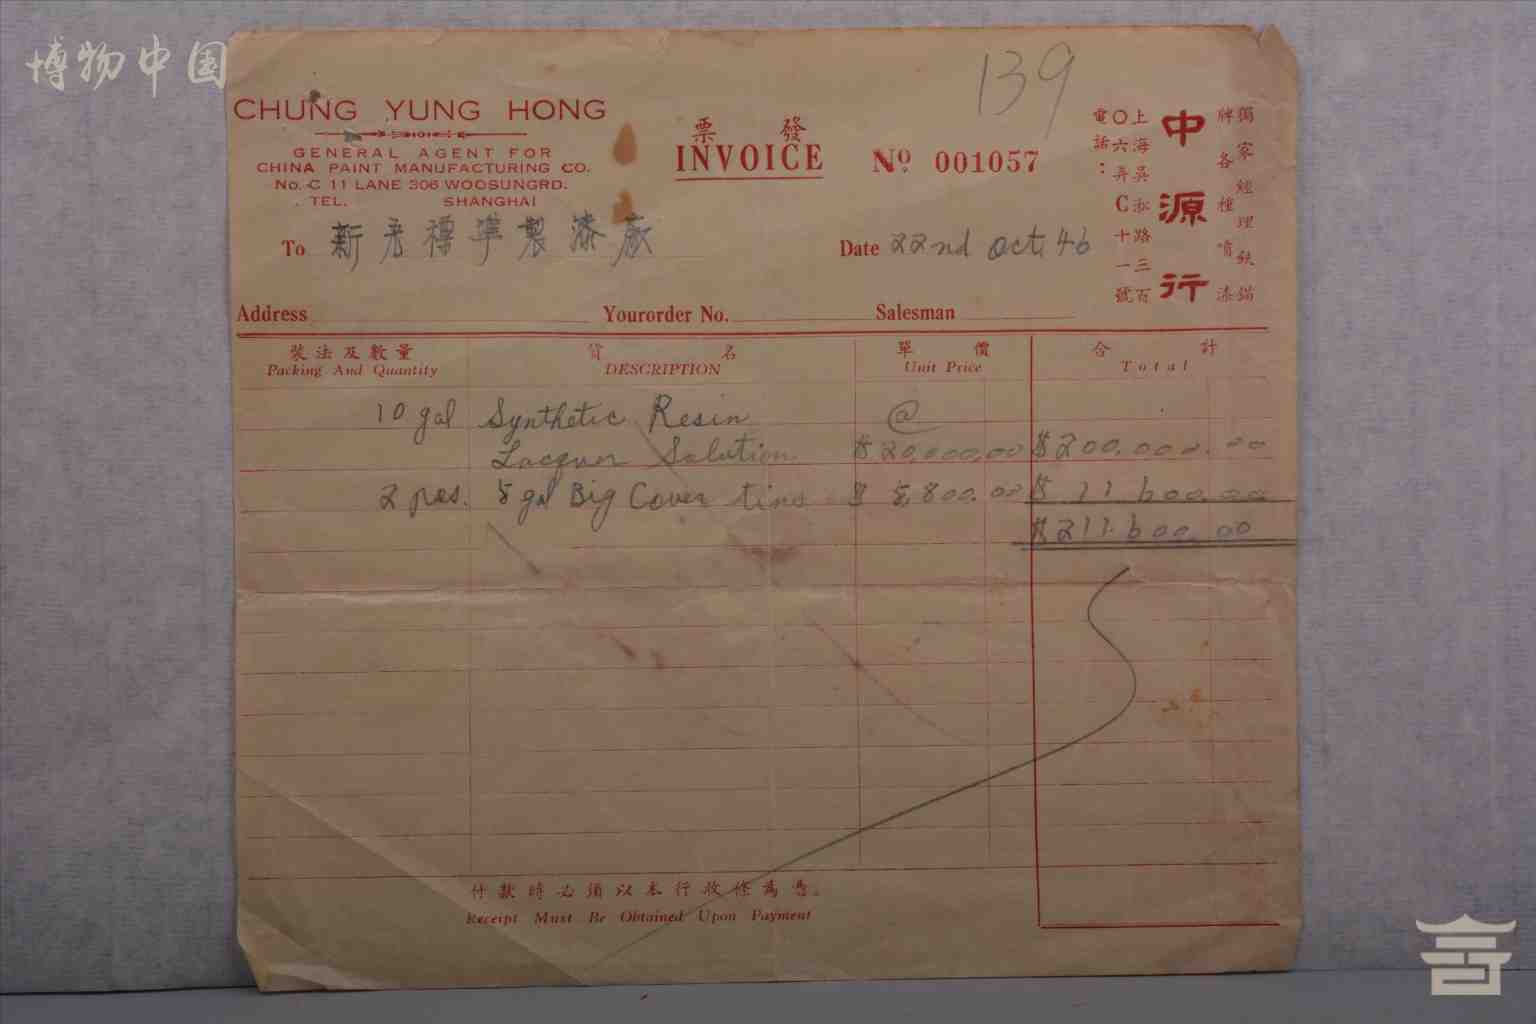 博物中国
139
CHUNG YUNG HONG
GENERAL AGENT FOR
CHINA PAINT MANUFACTURING CO.
No. C 11 LANE 306 WOOSUNG RD.
TEL. SHANGHAI
票 發
INVOICE
No 001057
獨家經理鉄錨
牌各種噴漆
中源行
上海吳淞路三百
〇六弄C十一號
電話：
To 新光標準製漆廠
Date 22nd Oct. 46
Address Yourorder No. Salesman
裝法及數量 貨名 單價 合計
Packing And Quantity DESCRIPTION Unit Price Total
10 gal Synthetic Resin @
Lacquer Solution $20,000.00 $200.000.00
2 pcs. 5 gal Big Cover tins $ 5,800.00 $ 11.600.00
$211.600.00
付款時必須以本行收條為憑。
Receipt Must Be Obtained Upon Payment